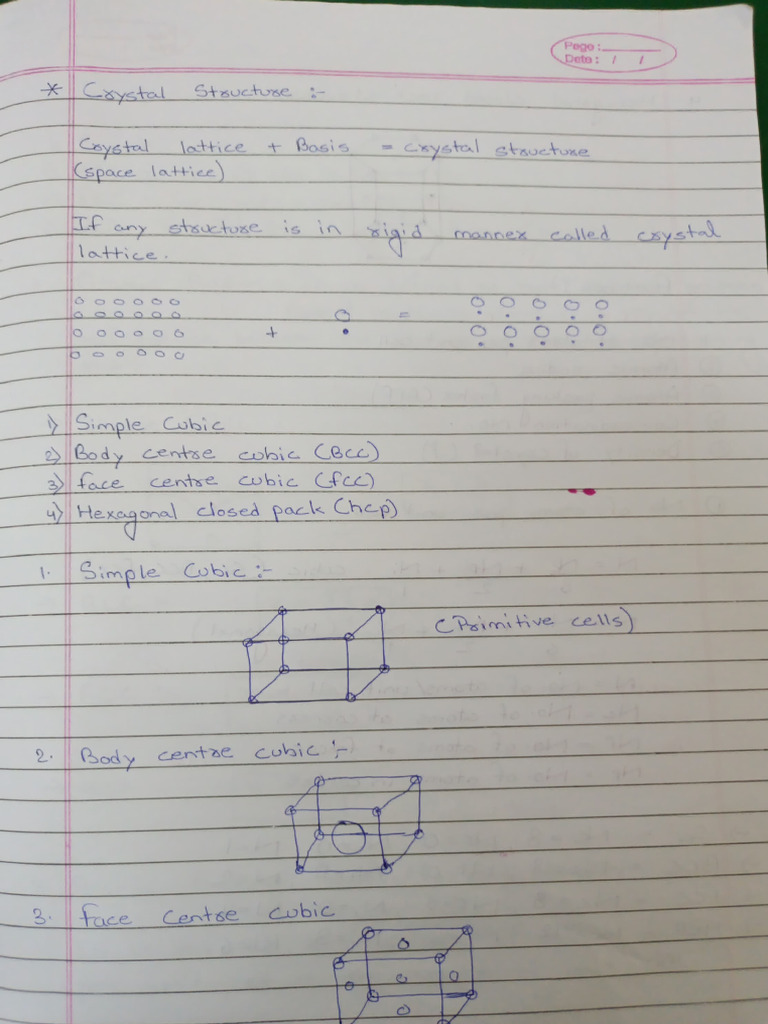 Page:
Date: / /
* Crystal Structure :-
Crystal lattice + Basis = crystal structure
(space lattice)
If any structure is in rigid manner called crystal
lattice.
+ =
1) Simple Cubic
2) Body centre cubic (BCC)
3) face centre cubic (fcc)
4) Hexagonal closed pack (hcp)
1. Simple Cubic :-
(Primitive cells)
2. Body centre cubic :-
3. face centre cubic